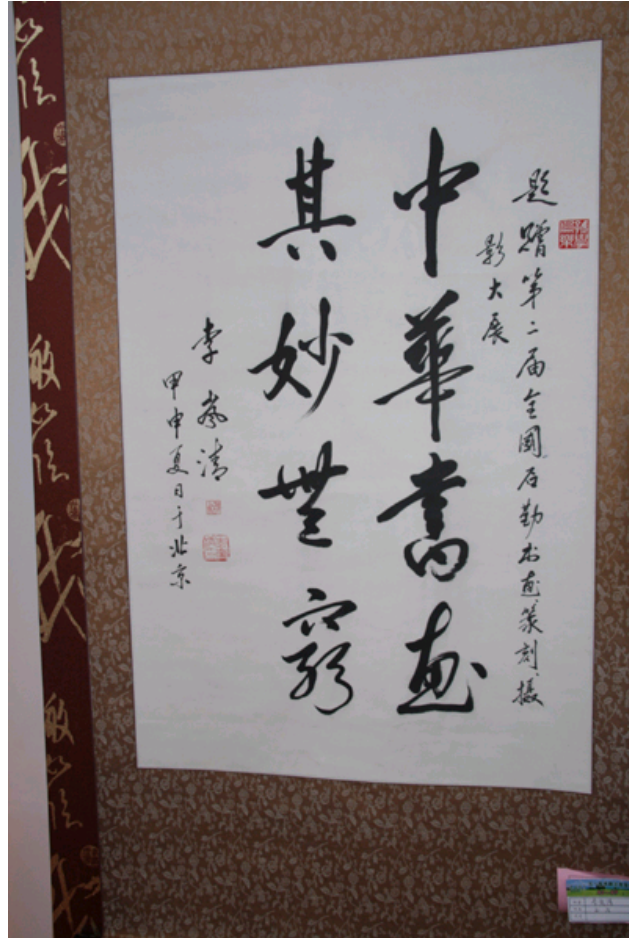 题赠第二届全国后勤书画、篆刻、摄
影大展
中華書画
其妙無窮
李岚清
甲申夏日于北京